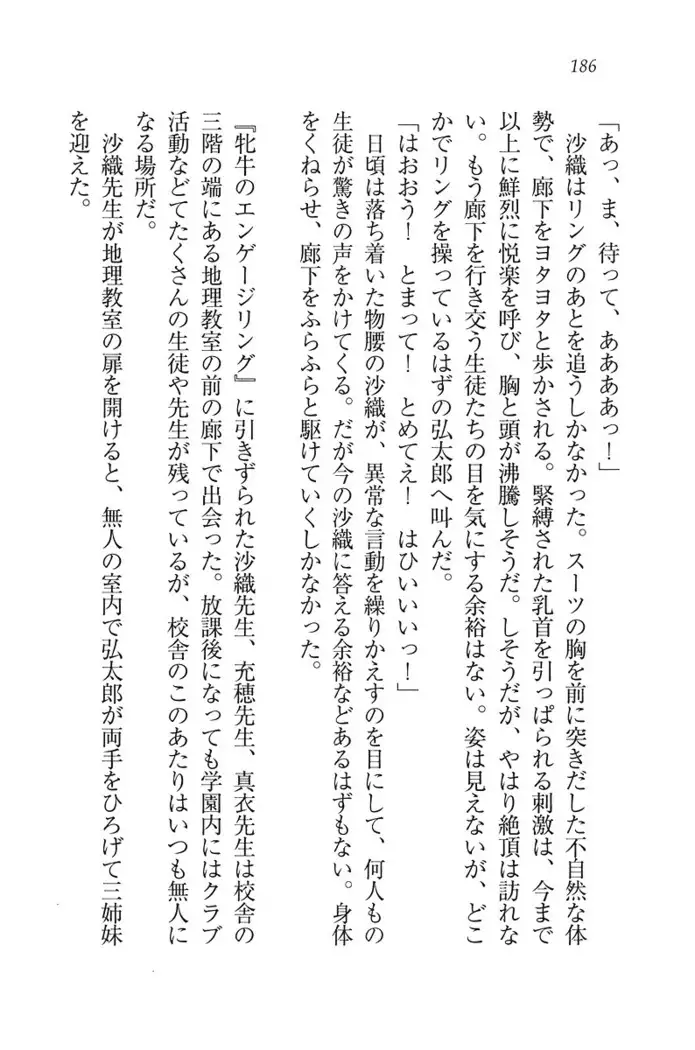 186
「あっ、ま、待って、ああああっ！」
　沙織はリングのあとを追うしかなかった。スーツの胸を前に突きだした不自然な体
勢で、廊下をヨタヨタと歩かされる。緊縛された乳首を引っぱられる刺激は、今まで
以上に鮮烈に悦楽を呼び、胸と頭が沸騰しそうだ。しそうだが、やはり絶頂は訪れな
い。もう廊下を行き交う生徒たちの目を気にする余裕はない。姿は見えないが、どこ
かでリングを操っているはずの弘太郎へ叫んだ。
「はおおう！　とまって！　とめてえ！　はひいいいっ！」
　日頃は落ち着いた物腰の沙織が、異常な言動を繰りかえすのを目にして、何人もの
生徒が驚きの声をかけてくる。だが今の沙織に答える余裕などあるはずもない。身体
をくねらせ、廊下をふらふらと駆けていくしかなかった。
『牝牛のエンゲージリング』に引きずられた沙織先生、充穂先生、真衣先生は校舎の
三階の端にある地理教室の前の廊下で出会った。放課後になっても学園内にはクラブ
活動などてたくさんの生徒や先生が残っているが、校舎のこのあたりはいつも無人に
なる場所だ。
　沙織先生が地理教室の扉を開けると、無人の室内で弘太郎が両手をひろげて三姉妹
を迎えた。